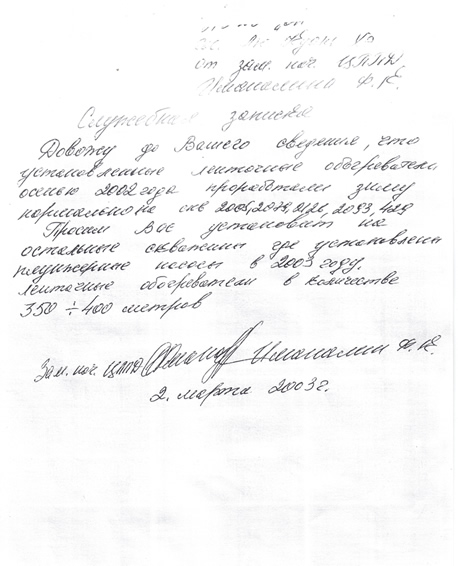 от зам. нач. ЦППД
Имамалин Ф. К.
Служебная записка
Довожу до Вашего сведения, что
установленные ленточные обогреватели
осенью 2002 года проработали зиму
нормально на скв 2005, 2079, 2126, 2093, 429
Просим Вас установит на
остальные скважины где установлены
плунжерные насосы в 2003 году.
ленточные обогреватели в количестве
350 ÷ 400 метров
Зам. нач. Имамалин Ф. К.
2. марта 2003 г.